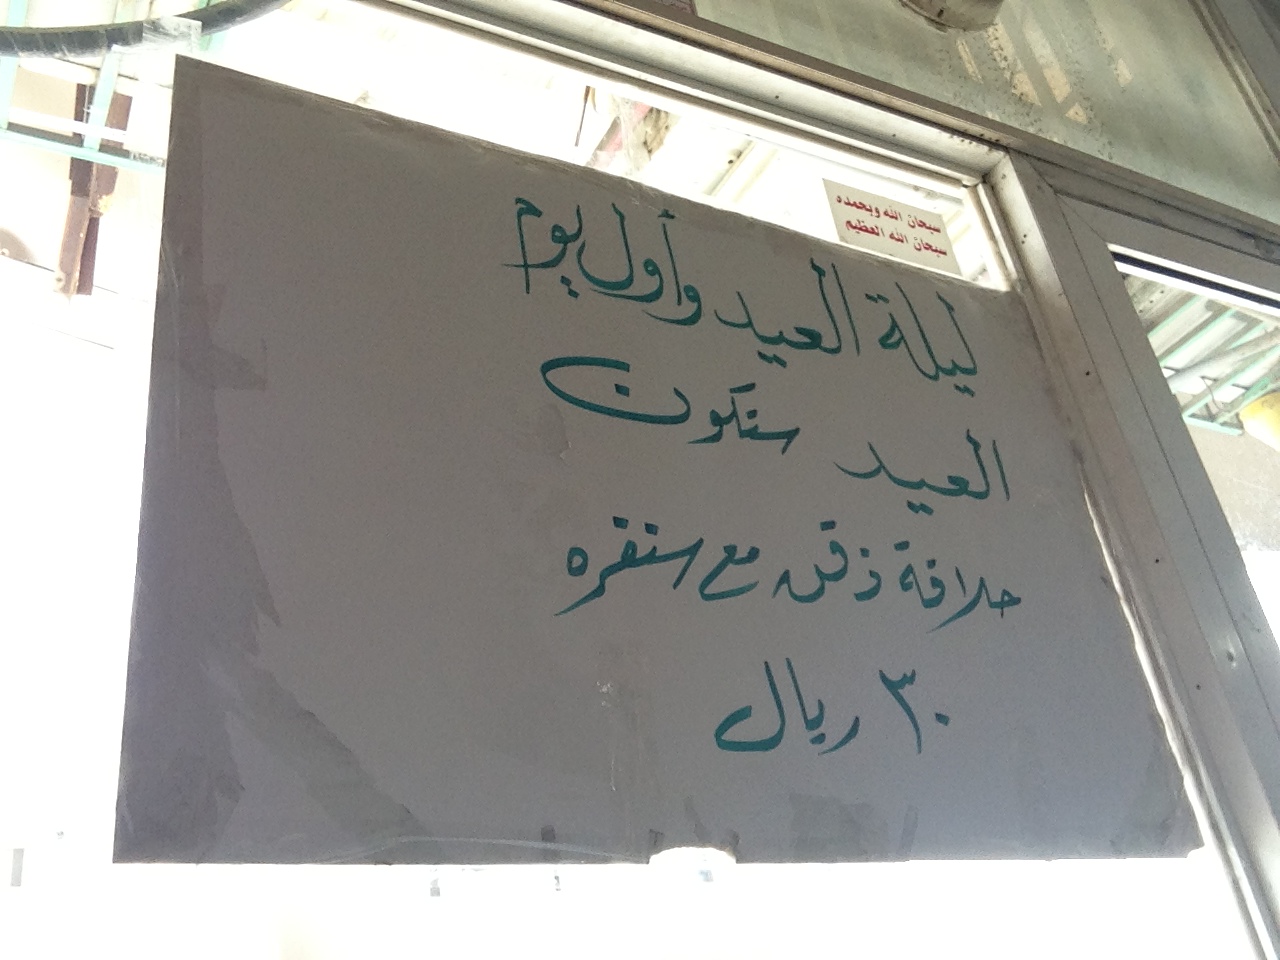 سبحان الله وبحمده
سبحان الله العظيم
ليلة العيد وأول يوم
العيد ستكون
حلاقة ذقن مع سنفره
٣٠ ريال